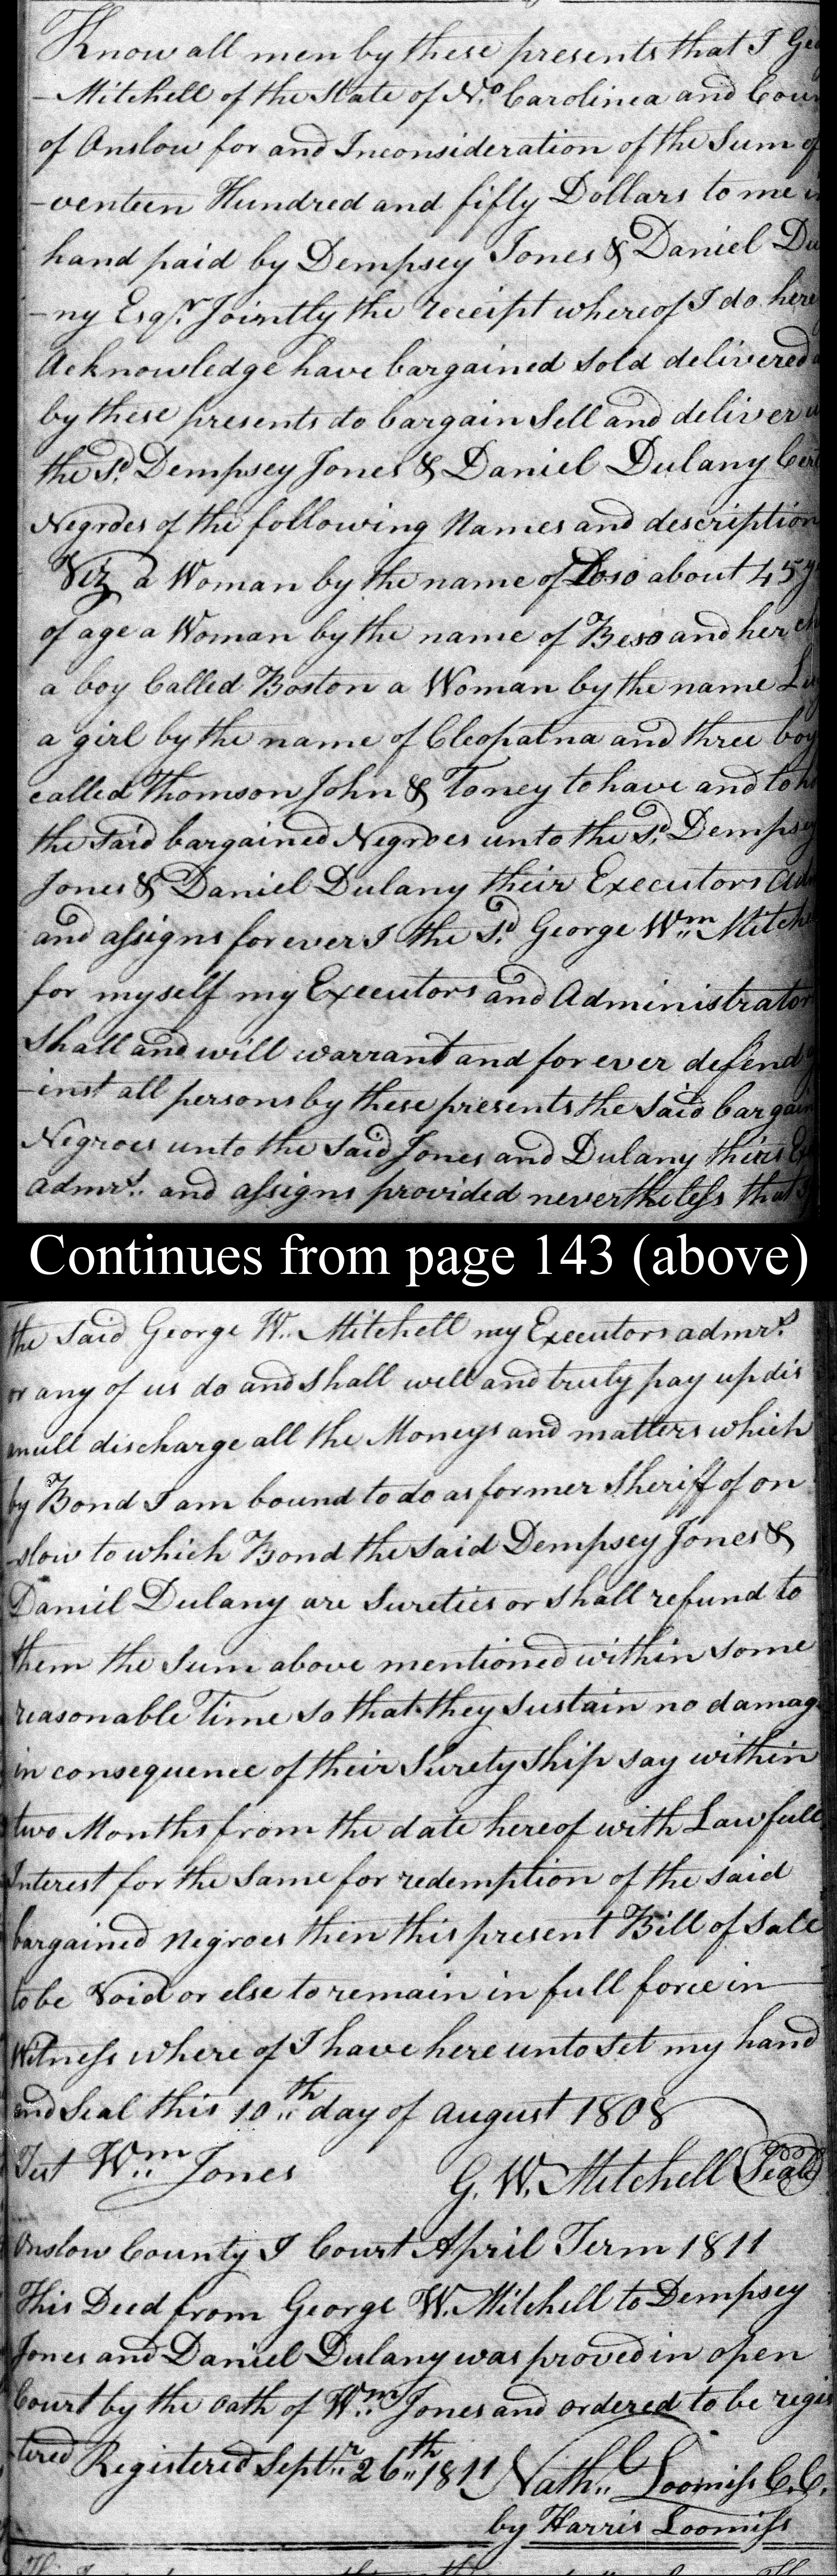 Know all men by these presents that I Geo
-Mitchell of the State of No. Carolinea and Coun
of Onslow for and Inconsideration of the Sum of
-venteen Hundred and fifty Dollars to me in
hand paid by Dempsey Jones & Daniel Du
-ny Esqr. Jointly the receipt whereof I do here
Acknowledge have bargained sold delivered
by these presents do bargain Sell and deliver
the Sd. Dempsey Jones & Daniel Dulany Cert
Negroes of the following Names and description
Viz a Woman by the name of about 45 y
of age a Woman by the name of Beso and her ch
a boy Called Boston a Woman by the name
a girl by the name of Cleopatna and three boy
called Thomson John & Toney to have and to ho
the said bargained Negroes unto the Sd. Dempsey
Jones & Daniel Dulany their Executors Adm
and assigns forever I the Sd. George Wm. Mitche
for myself my Executors and Administrator
shall and will warrant and forever defend
-inst all persons by these presents the said bargain
Negroes unto the said Jones and Dulany theirs Ex
admrs. and assigns provided nevertheless that
Continues from page 143 (above)
the said George W. Mitchell my Executors admrs.
or any of us do and shall well and truly pay up dis
anull discharge all the Moneys and matters which
by Bond I am bound to do as former Sheriff of on
-slow to which Bond the said Dempsey Jones &
Daniel Dulany are Sureties or shall refund to
them the Sum above mentioned within some
reasonable Time so that they sustain no damag
in consequence of their Surety ship say within
two Months from the date hereof with Lawfull
Interest for the same for redemption of the said
bargained negroes then this present Bill of Sale
to be Void or else to remain in full force in
Witness where of I have here unto set my hand
and Seal this 10th day of august 1808
Test Wm. Jones G. W. Mitchell (Seal)
Onslow County I Court April Term 1811
This Deed from George W. Mitchell to Dempsey
Jones and Daniel Dulany was proved in open
Court by the oath of Wm. Jones and ordered to be regis
-tered Registered Septr. 26th 1811 Nath. Loomiss C.C.
by Harris Loomiss